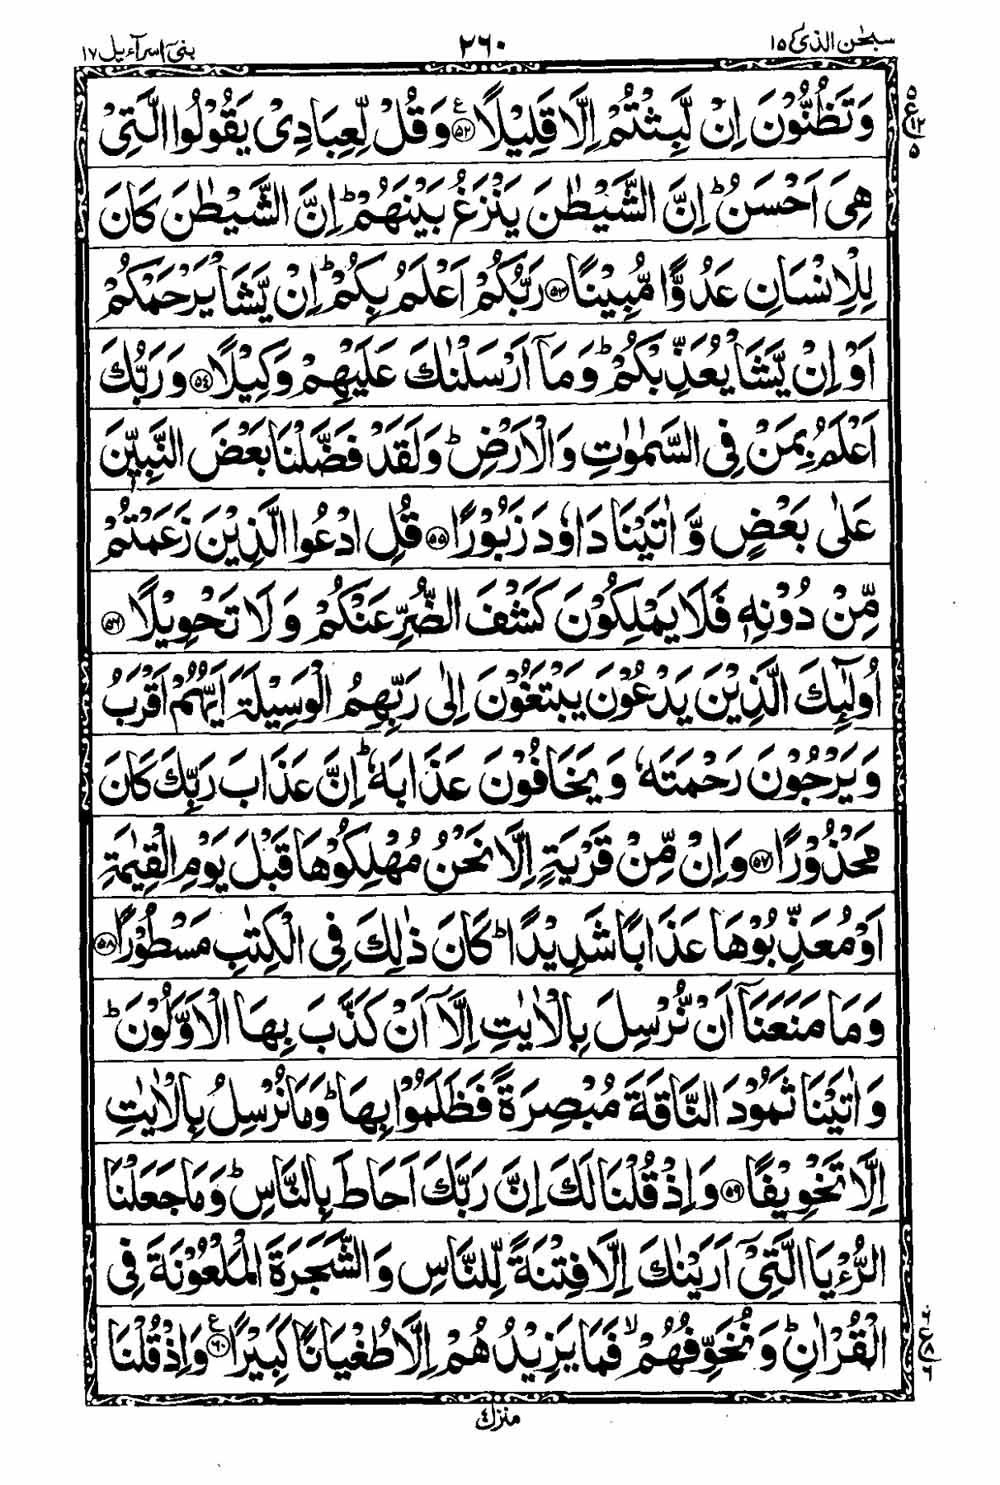 سبحٰن الذیٓ ١٥ ٢٦٠ بنیٓ اسرآءیل ١٧
وَ تَظُنُّوْنَ اِنْ لَّبِثْتُمْ اِلَّا قَلِیْلًا ﴿۵۲﴾ ع وَ قُلْ لِّعِبَادِیْ یَقُوْلُوا الَّتِیْ
هِیَ اَحْسَنُ ؕ اِنَّ الشَّیْطٰنَ یَنْزَغُ بَیْنَهُمْ ؕ اِنَّ الشَّیْطٰنَ كَانَ
لِلْاِنْسَانِ عَدُوًّا مُّبِیْنًا ﴿۵۳﴾ رَبُّكُمْ اَعْلَمُ بِكُمْ ؕ اِنْ یَّشَاْ یَرْحَمْكُمْ
اَوْ اِنْ یَّشَاْ یُعَذِّبْكُمْ ؕ وَ مَاۤ اَرْسَلْنٰكَ عَلَیْهِمْ وَكِیْلًا ﴿۵۴﴾ وَ رَبُّكَ
اَعْلَمُ بِمَنْ فِی السَّمٰوٰتِ وَ الْاَرْضِ ؕ وَ لَقَدْ فَضَّلْنَا بَعْضَ النَّبِیّٖنَ
عَلٰی بَعْضٍ وَّ اٰتَیْنَا دَاوٗدَ زَبُوْرًا ﴿۵۵﴾ قُلِ ادْعُوا الَّذِیْنَ زَعَمْتُمْ
مِّنْ دُوْنِهٖ فَلَا یَمْلِكُوْنَ كَشْفَ الضُّرِّ عَنْكُمْ وَ لَا تَحْوِیْلًا ﴿۵۶﴾
اُولٰٓىِٕكَ الَّذِیْنَ یَدْعُوْنَ یَبْتَغُوْنَ اِلٰی رَبِّهِمُ الْوَسِیْلَةَ اَیُّهُمْ اَقْرَبُ
وَ یَرْجُوْنَ رَحْمَتَهٗ وَ یَخَافُوْنَ عَذَابَهٗ ؕ اِنَّ عَذَابَ رَبِّكَ كَانَ
مَحْذُوْرًا ﴿۵۷﴾ وَ اِنْ مِّنْ قَرْیَةٍ اِلَّا نَحْنُ مُهْلِكُوْهَا قَبْلَ یَوْمِ الْقِیٰمَةِ
اَوْ مُعَذِّبُوْهَا عَذَابًا شَدِیْدًا ؕ كَانَ ذٰلِكَ فِی الْكِتٰبِ مَسْطُوْرًا ﴿۵۸﴾
وَ مَا مَنَعَنَاۤ اَنْ نُّرْسِلَ بِالْاٰیٰتِ اِلَّاۤ اَنْ كَذَّبَ بِهَا الْاَوَّلُوْنَ ؕ
وَ اٰتَیْنَا ثَمُوْدَ النَّاقَةَ مُبْصِرَةً فَظَلَمُوْا بِهَا ؕ وَ مَا نُرْسِلُ بِالْاٰیٰتِ
اِلَّا تَخْوِیْفًا ﴿۵۹﴾ وَ اِذْ قُلْنَا لَكَ اِنَّ رَبَّكَ اَحَاطَ بِالنَّاسِ ؕ وَ مَا جَعَلْنَا
الرُّءْیَا الَّتِیْۤ اَرَیْنٰكَ اِلَّا فِتْنَةً لِّلنَّاسِ وَ الشَّجَرَةَ الْمَلْعُوْنَةَ فِی
الْقُرْاٰنِ ؕ وَ نُخَوِّفُهُمْ ۙ فَمَا یَزِیْدُهُمْ اِلَّا طُغْیَانًا كَبِیْرًا ﴿۶۰﴾ ع وَ اِذْ قُلْنَا
منزل ٤
٥ ع ١٢ ٥
ع ٨ ٦